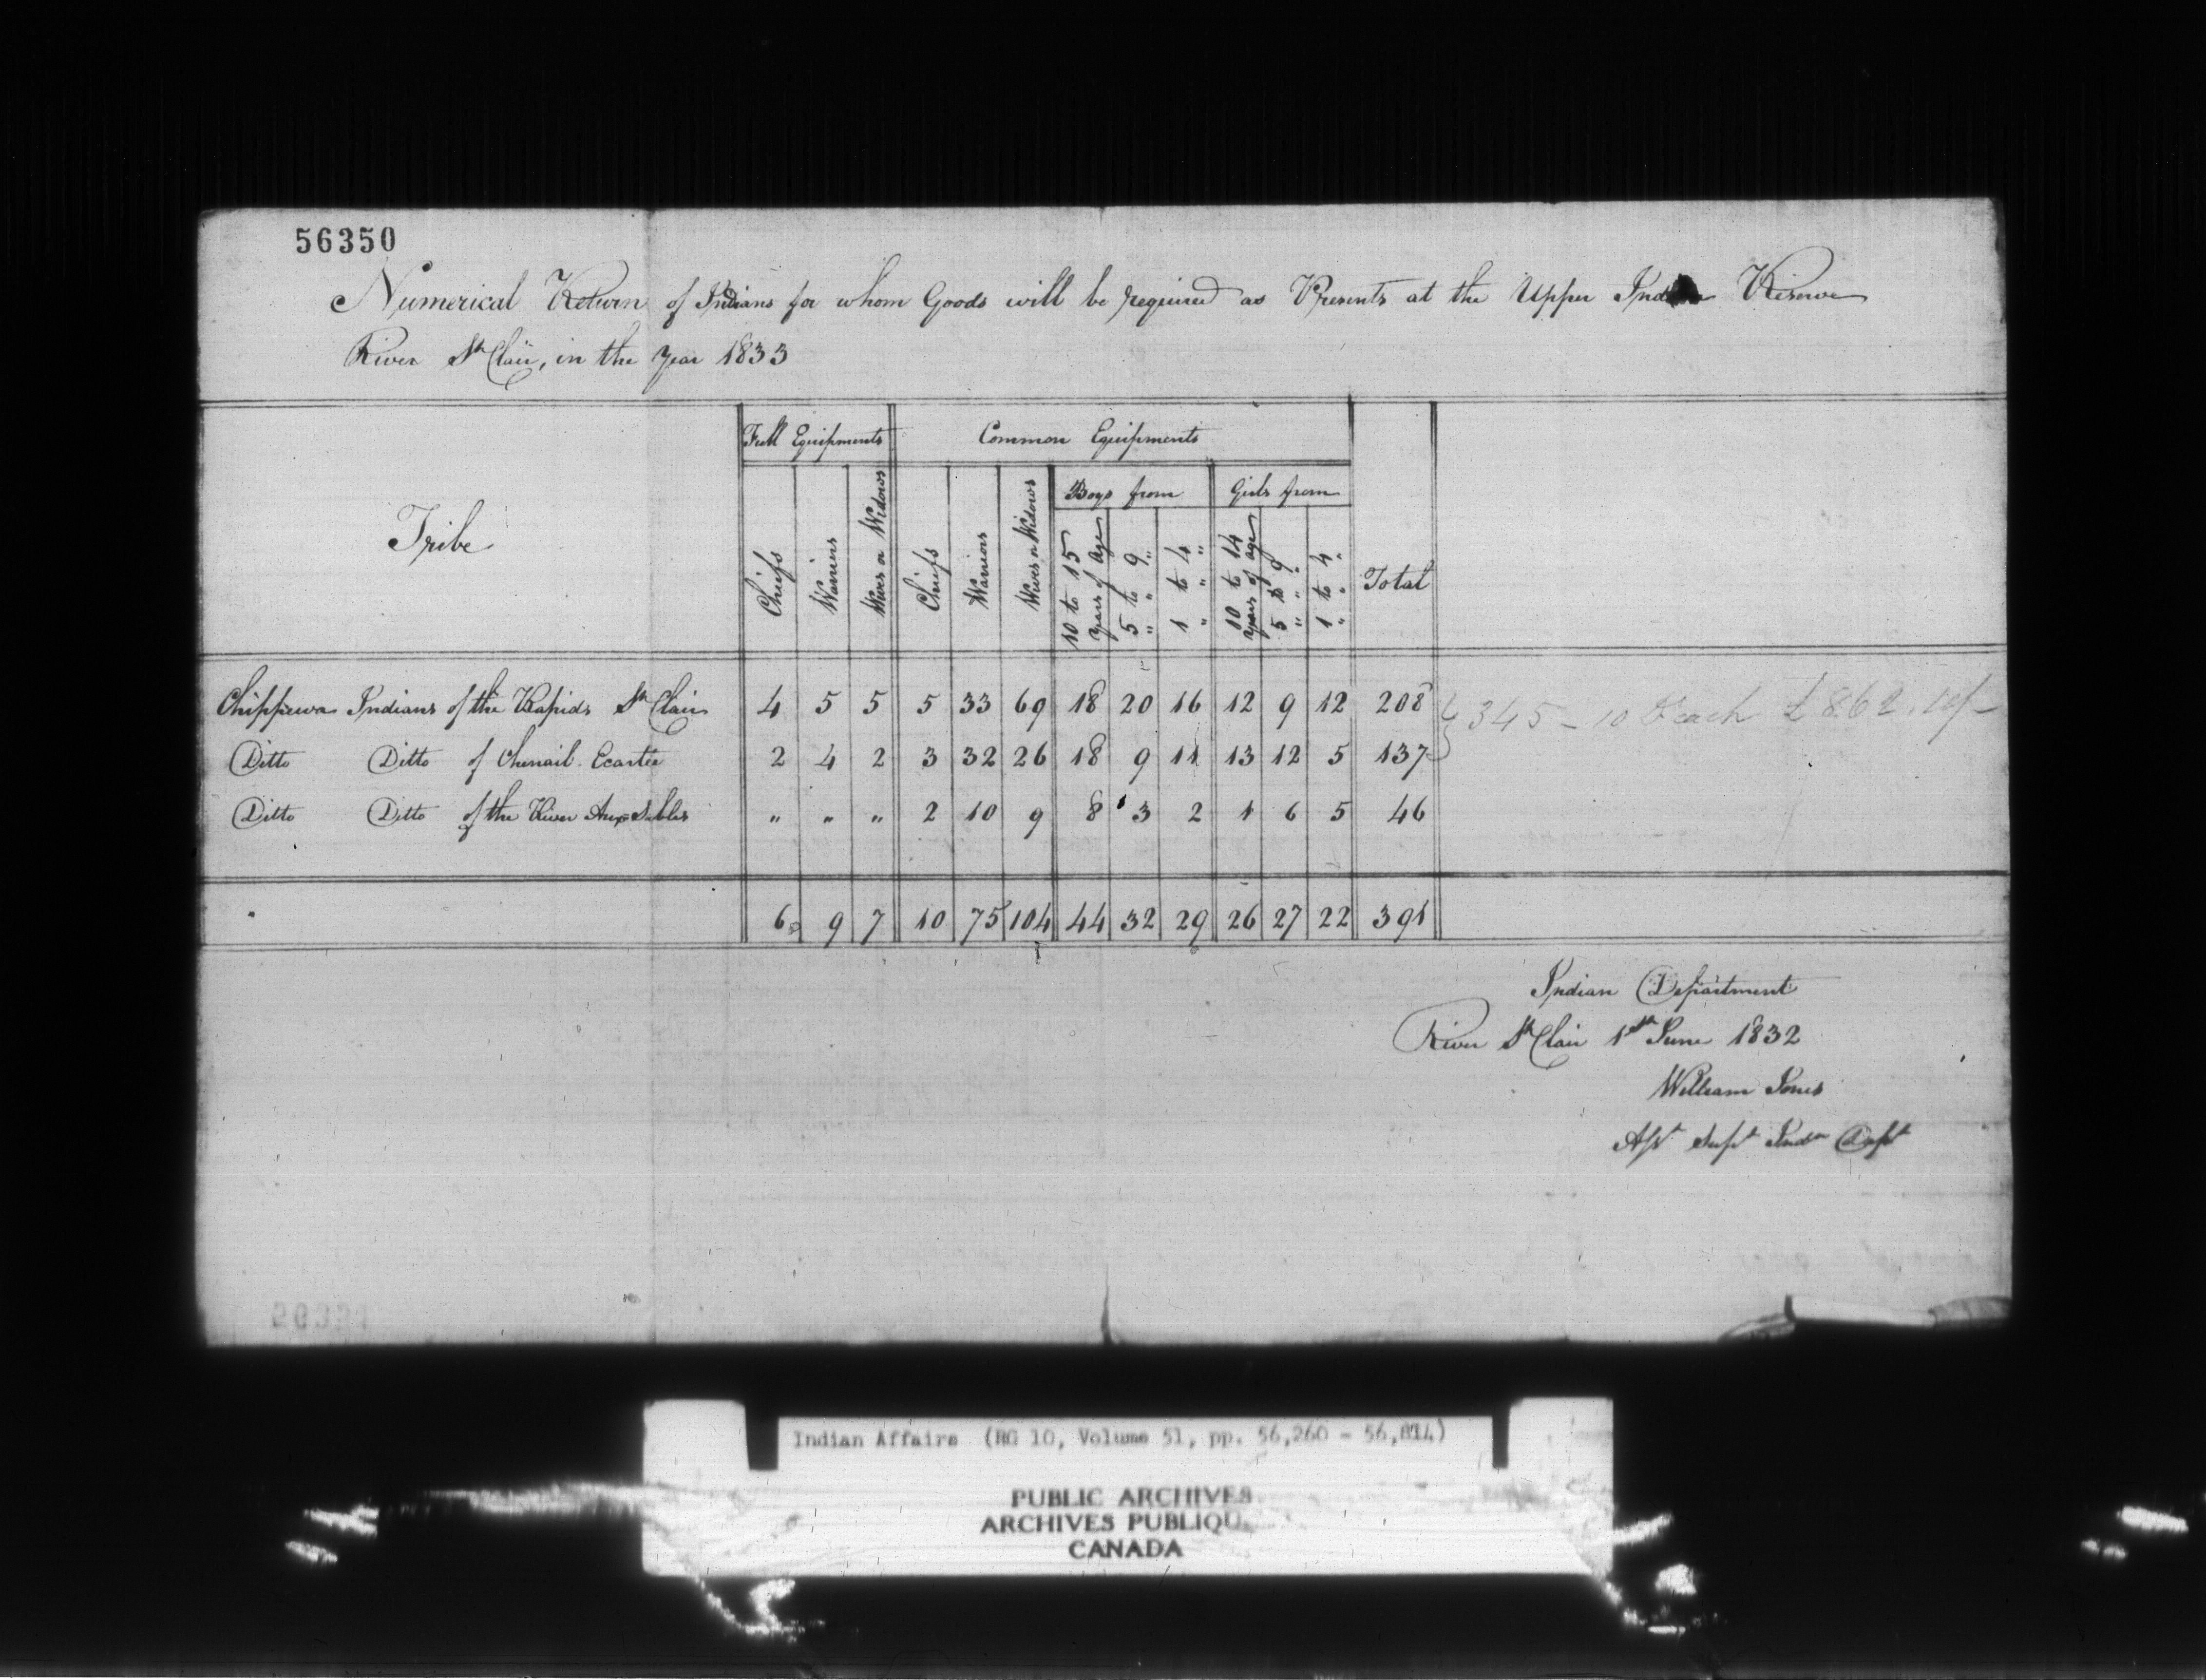 56350
Numerical Return of Indians for whom Goods will be required as Presents at the Upper Indian Reserve
River St Clair, in the Year 1833
Tribe
Full Equipments
Common Equipments
Boys from
Girls from
Chiefs
Warriors
Wives or Widows
Chiefs
Warriors
Wives or Widows
10 to 15 years of Age
5 to 9 "
1 to 4 "
10 to 14 years of age
5 to 9 "
1 to 4 "
Total
Chippewa Indians of the Rapids St Clair 4 5 5 5 33 69 18 20 16 12 9 12 208 } 345 - 10 each £862.10/-
Ditto Ditto of Chenail Ecartée 2 4 2 3 32 26 18 9 11 13 12 5 137
Ditto Ditto of the River Aux Sables " " " 2 10 9 8 3 2 1 6 5 46
6 9 7 10 75 104 44 32 29 26 27 22 391
Indian Department
River St Clair 1st June 1832
William Jones
Asst Supt Indn Dept
Indian Affairs (RG 10, Volume 51, pp. 56,260 - 56,814)
PUBLIC ARCHIVES
ARCHIVES PUBLIQU
CANADA